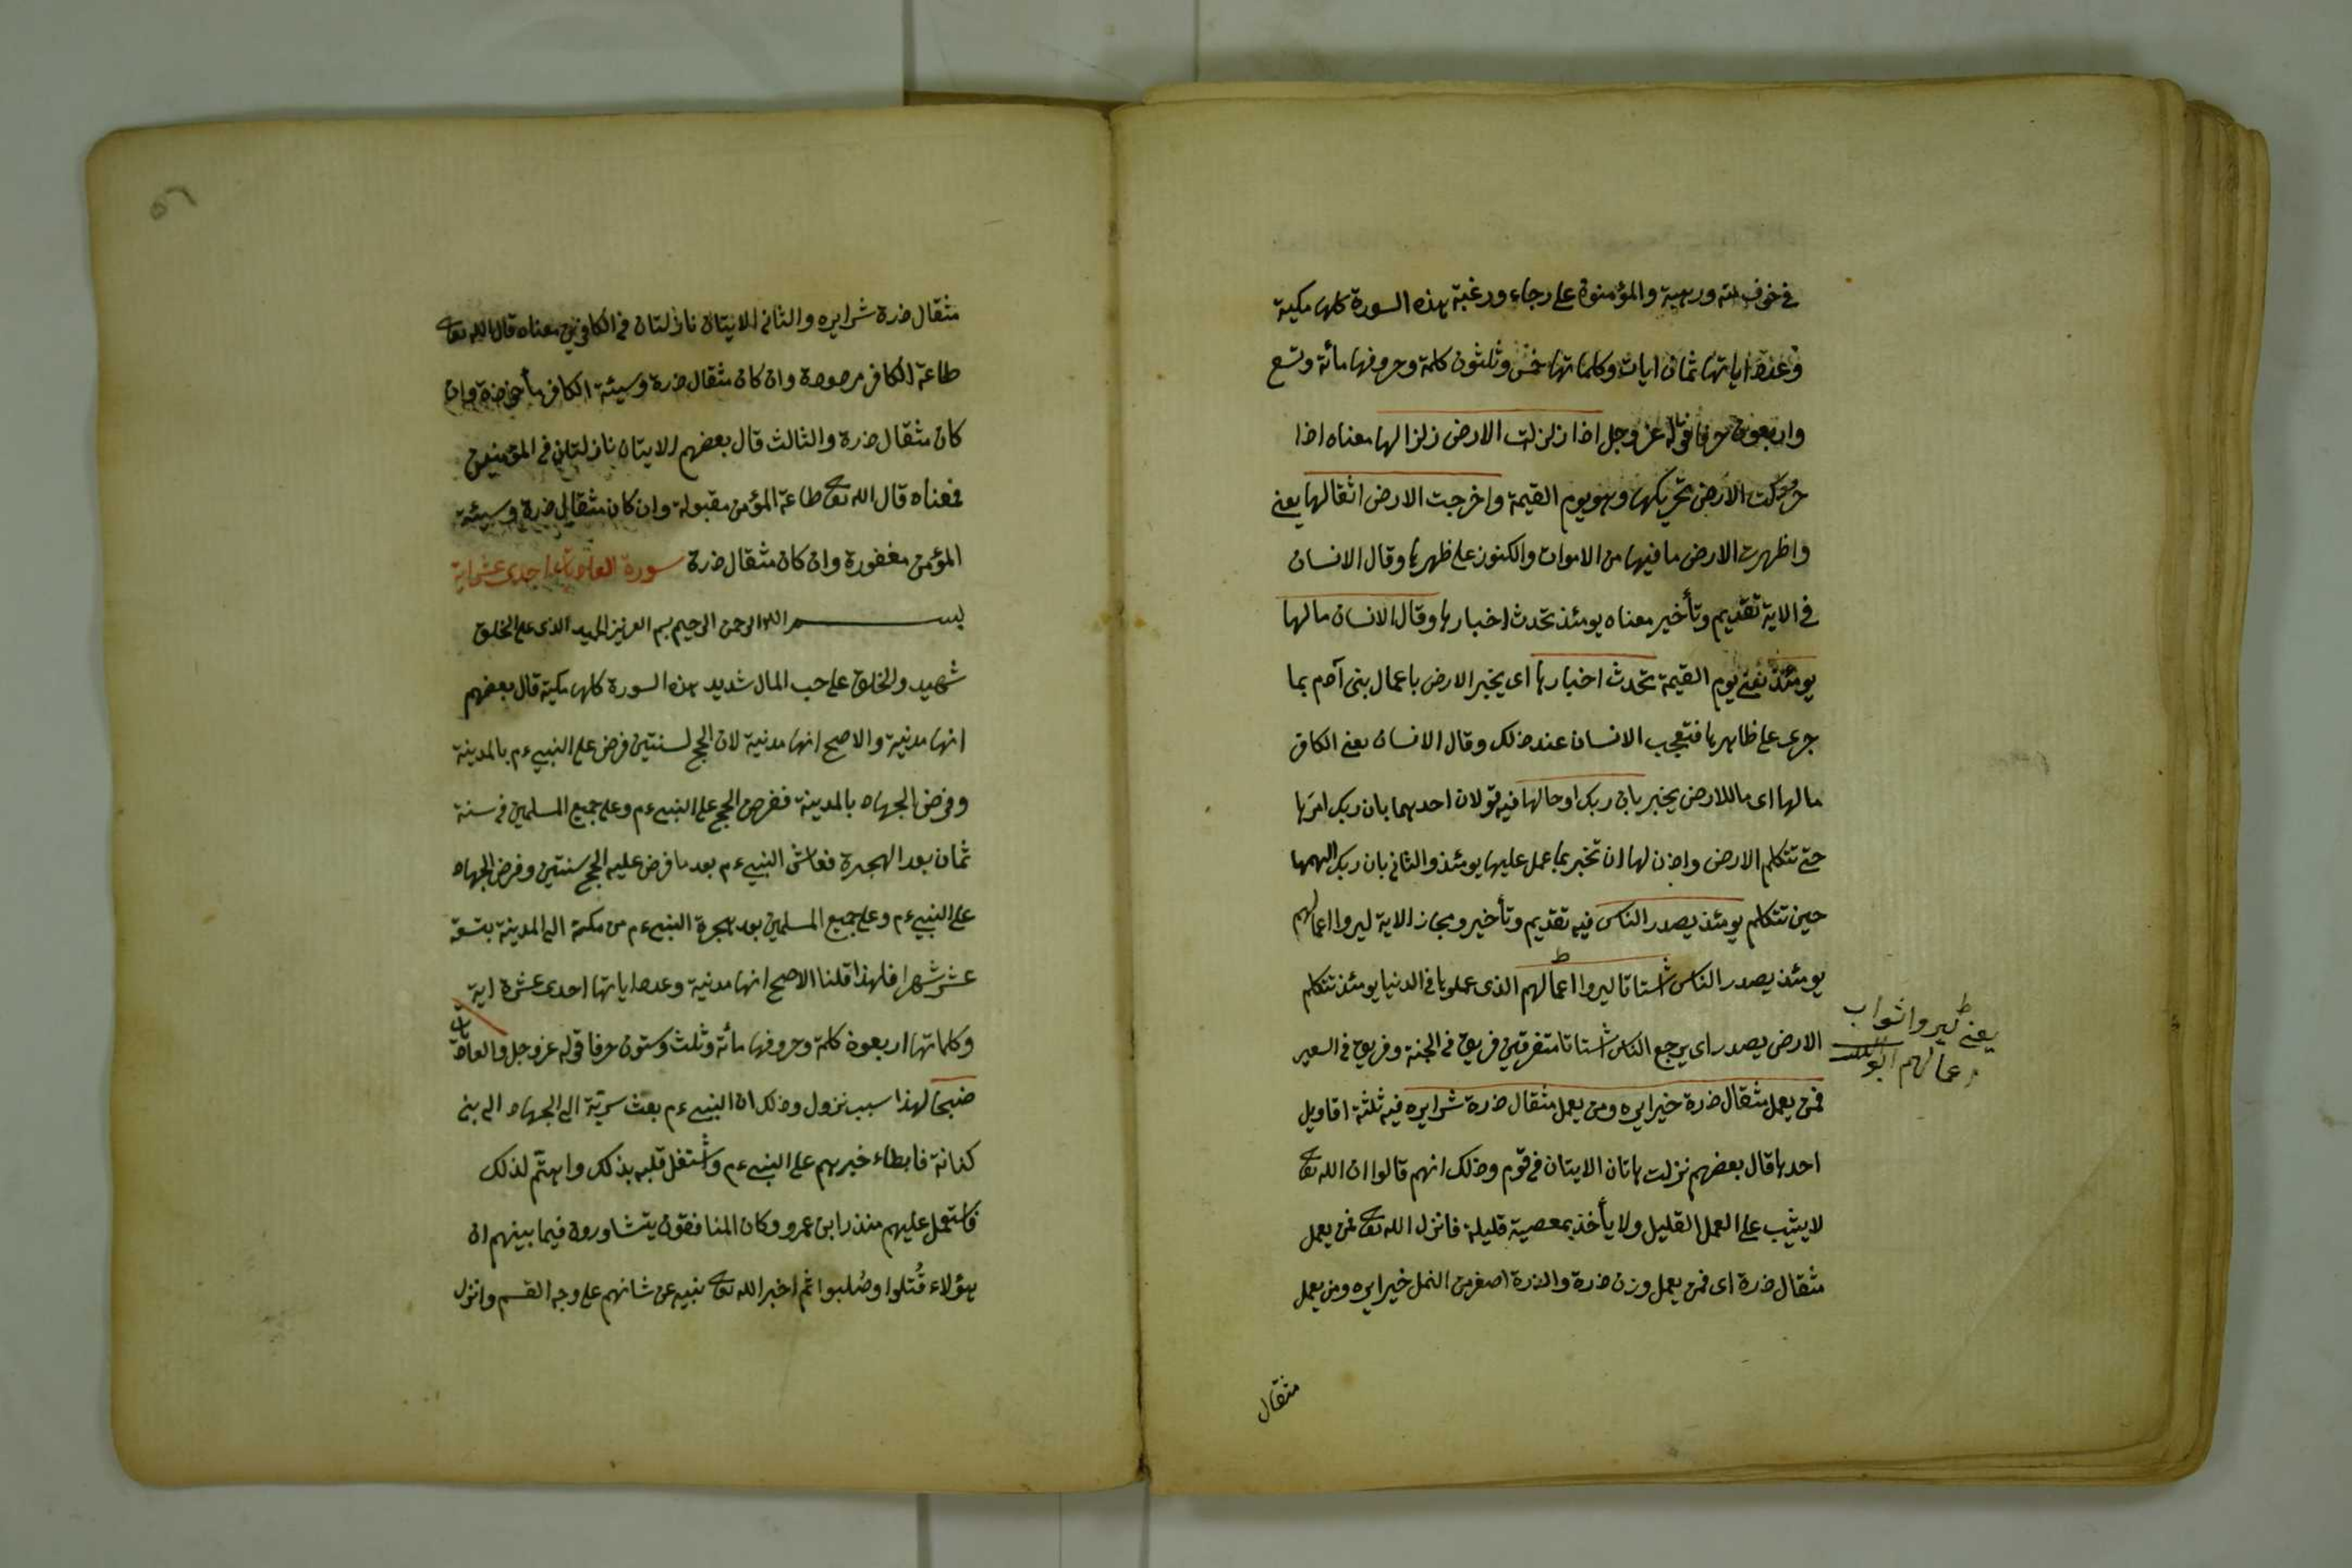 في خوف منه ورهبة والمؤمنون على رجاء ورغبة هذه السورة كلها مكية
وعدد اياتها ثمان ايات وكلماتها خمس وثلثون كلمة وحروفها مائة وتسع
واربعون حرفا قوله عز وجل اذا زلزلت الارض زلزالها معناه اذا
حركت الارض تحريكها وهو يوم القيمة واخرجت الارض اثقالها يعني
واظهرت الارض ما فيها من الاموات والكنوز على ظهرها وقال الانسان
في الاية تقديم وتأخير معناه يومئذ تحدث اخبارها وقال الانسان ما لها
يومئذ يعني يوم القيمة تحدث اخبارها اى يخبر الارض باعمال بنى آدم بما
جرى على ظاهرها فتعجب الانسان عند ذلك وقال الانسان يعني الكافر
ما لها اى ما للارض يخبر بان ربك اوحا لها فيه قولان احدهما بان ربك امرها
حتى تتكلم الارض واذن لها ان تخبر بما عمل عليها يومئذ والثاني بان ربك الهمها
حين تتكلم يومئذ يصدر الناس فيه تقديم وتأخير ومجاز الاية ليروا اعمالهم
يومئذ يصدر الناس اشتاتا ليروا اعمالهم الذى عملوها في الدنيا يومئذ تتكلم
الارض يصدر اى يرجع الناس اشتاتا متفرقين فريق في الجنة وفريق في السعير
فمن يعمل مثقال ذرة خيرا يره ومن يعمل مثقال ذرة شرا يره فيه ثلثة اقاويل
احدها قال بعضهم نزلت هاتان الايتان في قوم وذلك انهم قالوا ان الله تعا
لا يثيب على العمل القليل ولا يأخذ بمعصية قليلة فانزل الله تعا فمن يعمل
مثقال ذرة اى فمن يعمل وزن ذرة والذرة اصغر من النمل خيرا يره ومن يعمل
مثقال
يعني ليروا ثواب
اعمالهم ابو الليث
٥٦
مثقال ذرة شرا يره والثاني الايتان نازلتان في الكافرين معناه قال الله تعا
طاعة الكافر مردودة وان كان مثقال ذرة وسيئة الكافر مأخوذة وان
كان مثقال ذرة والثالث قال بعضهم الايتان نازلتان في المؤمنين
فمعناه قال الله تعا طاعة المؤمن مقبولة وان كان مثقال ذرة وسيئة
المؤمن مغفورة وان كان مثقال ذرة سورة العاديات احدى عشر اية
بسم الله الرحمن الرحيم بسم العزيز المجيد الذى على الخلق
شهيد والخلق على حب المال شديد هذه السورة كلها مكية قال بعضهم
انها مدنية والاصح انها مدنية لان الحج لسنتين فرض على النبي ءم بالمدينة
وفرض الجهاد بالمدينة ففرض الحج على النبي ءم وعلى جميع المسلمين في سنة
ثمان بعد الهجرة فعاش النبي ءم بعد ما فرض عليه الحج سنتين وفرض الجهاد
على النبي ءم وعلى جميع المسلمين بعد هجرة النبي ءم من مكة الى المدينة بتسعة
عشر شهرا فلهذا قلنا الاصح انها مدنية وعدد اياتها احدى عشرة اية
وكلماتها اربعون كلمة وحروفها مائة وثلث وستون حرفا قوله عز وجل والعاديات
ضبحا لهذا سبب نزول وذلك ان النبي ءم بعث سرية الى الجهاد الى بني
كنانة فابطاء خبرهم على النبي ءم واشتغل قلبه بذلك واهتم لذلك
فاستعمل عليهم منذر ابن عمرو وكان المنافقون يتشاورون فيما بينهم ان
هؤلاء قُتلوا وصُلبوا ثم اخبر الله تعا نبيه عن شانهم على وجه القسم وانزل